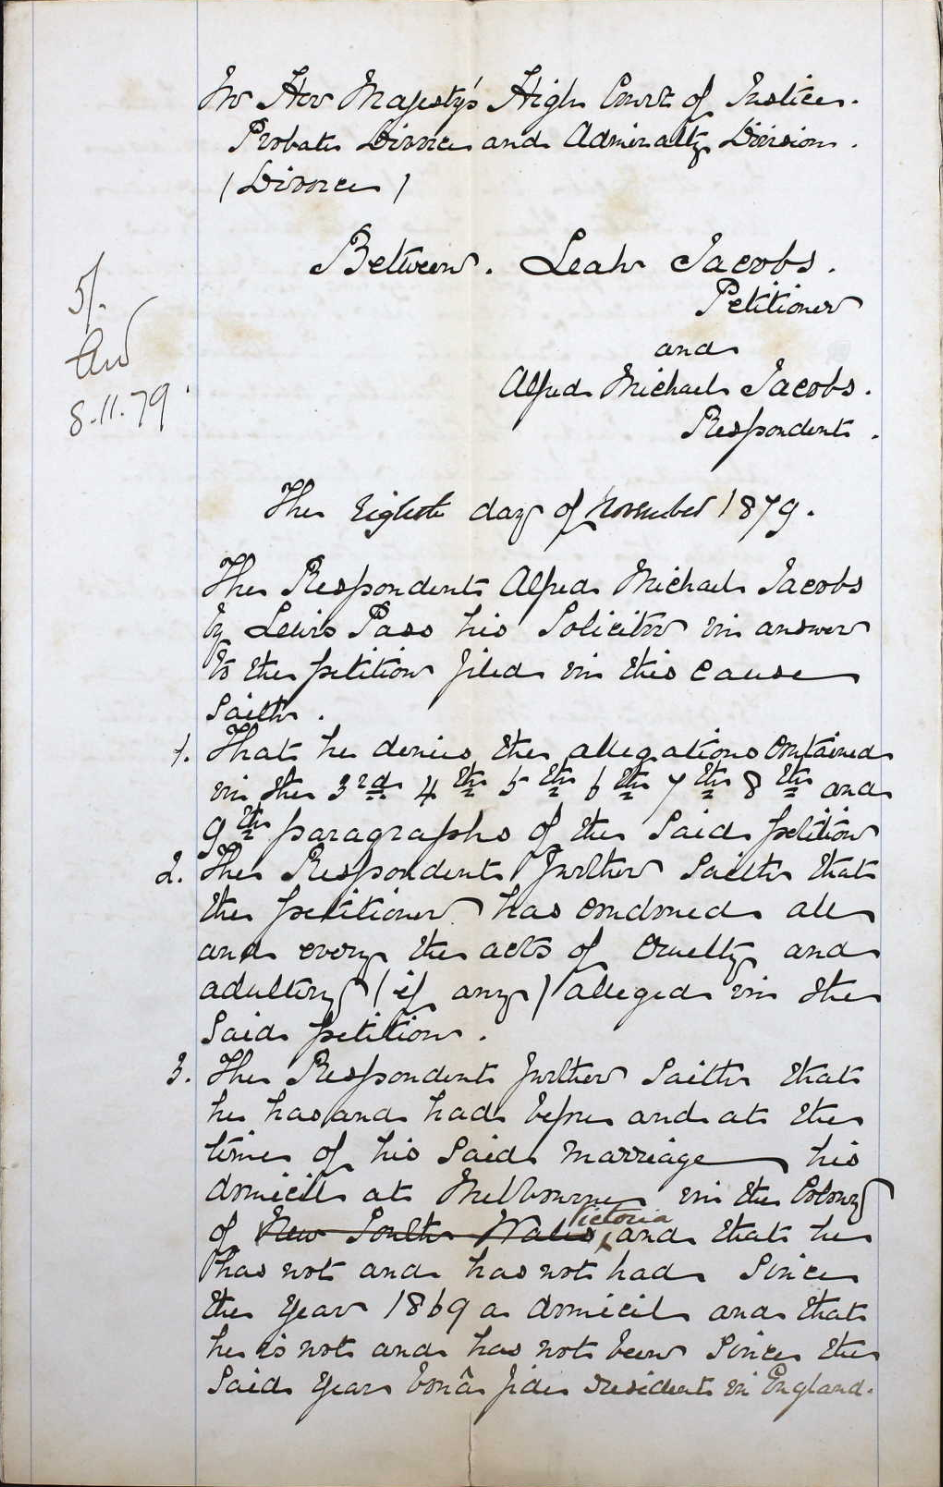 In Her Majesty's High Court of Justice.
Probate Divorce and Admiralty Division.
(Divorce)
Between. Leah Jacobs.
Petitioner
and
Alfred Michael Jacobs.
Respondent.
5/-
8.11.79.
The Eighth day of November 1879.
The Respondent Alfred Michael Jacobs
by Lewis Pass his Solicitor in answer
to the petition filed in this cause
saith.
1. That he denies the allegations contained
in the 3rd 4th 5th 6th 7th 8th and
9th paragraphs of the said petition
2. The Respondent further saith that
the petitioner has condoned all
and every the acts of cruelty and
adultery (if any) alleged in the
said petition.
3. The Respondent further saith that
he has and had before and at the
time of his said marriage his
domicil at Melbourne in the Colony
of New South Wales Victoria and that he
has not and has not had since
the year 1869 a domicil and that
he is not and has not been since the
said year bonâ fide resident in England.